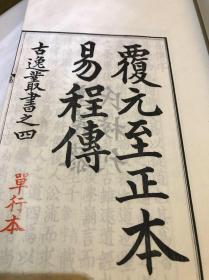 覆元至正本
易程傳
古逸叢書之四
單行本